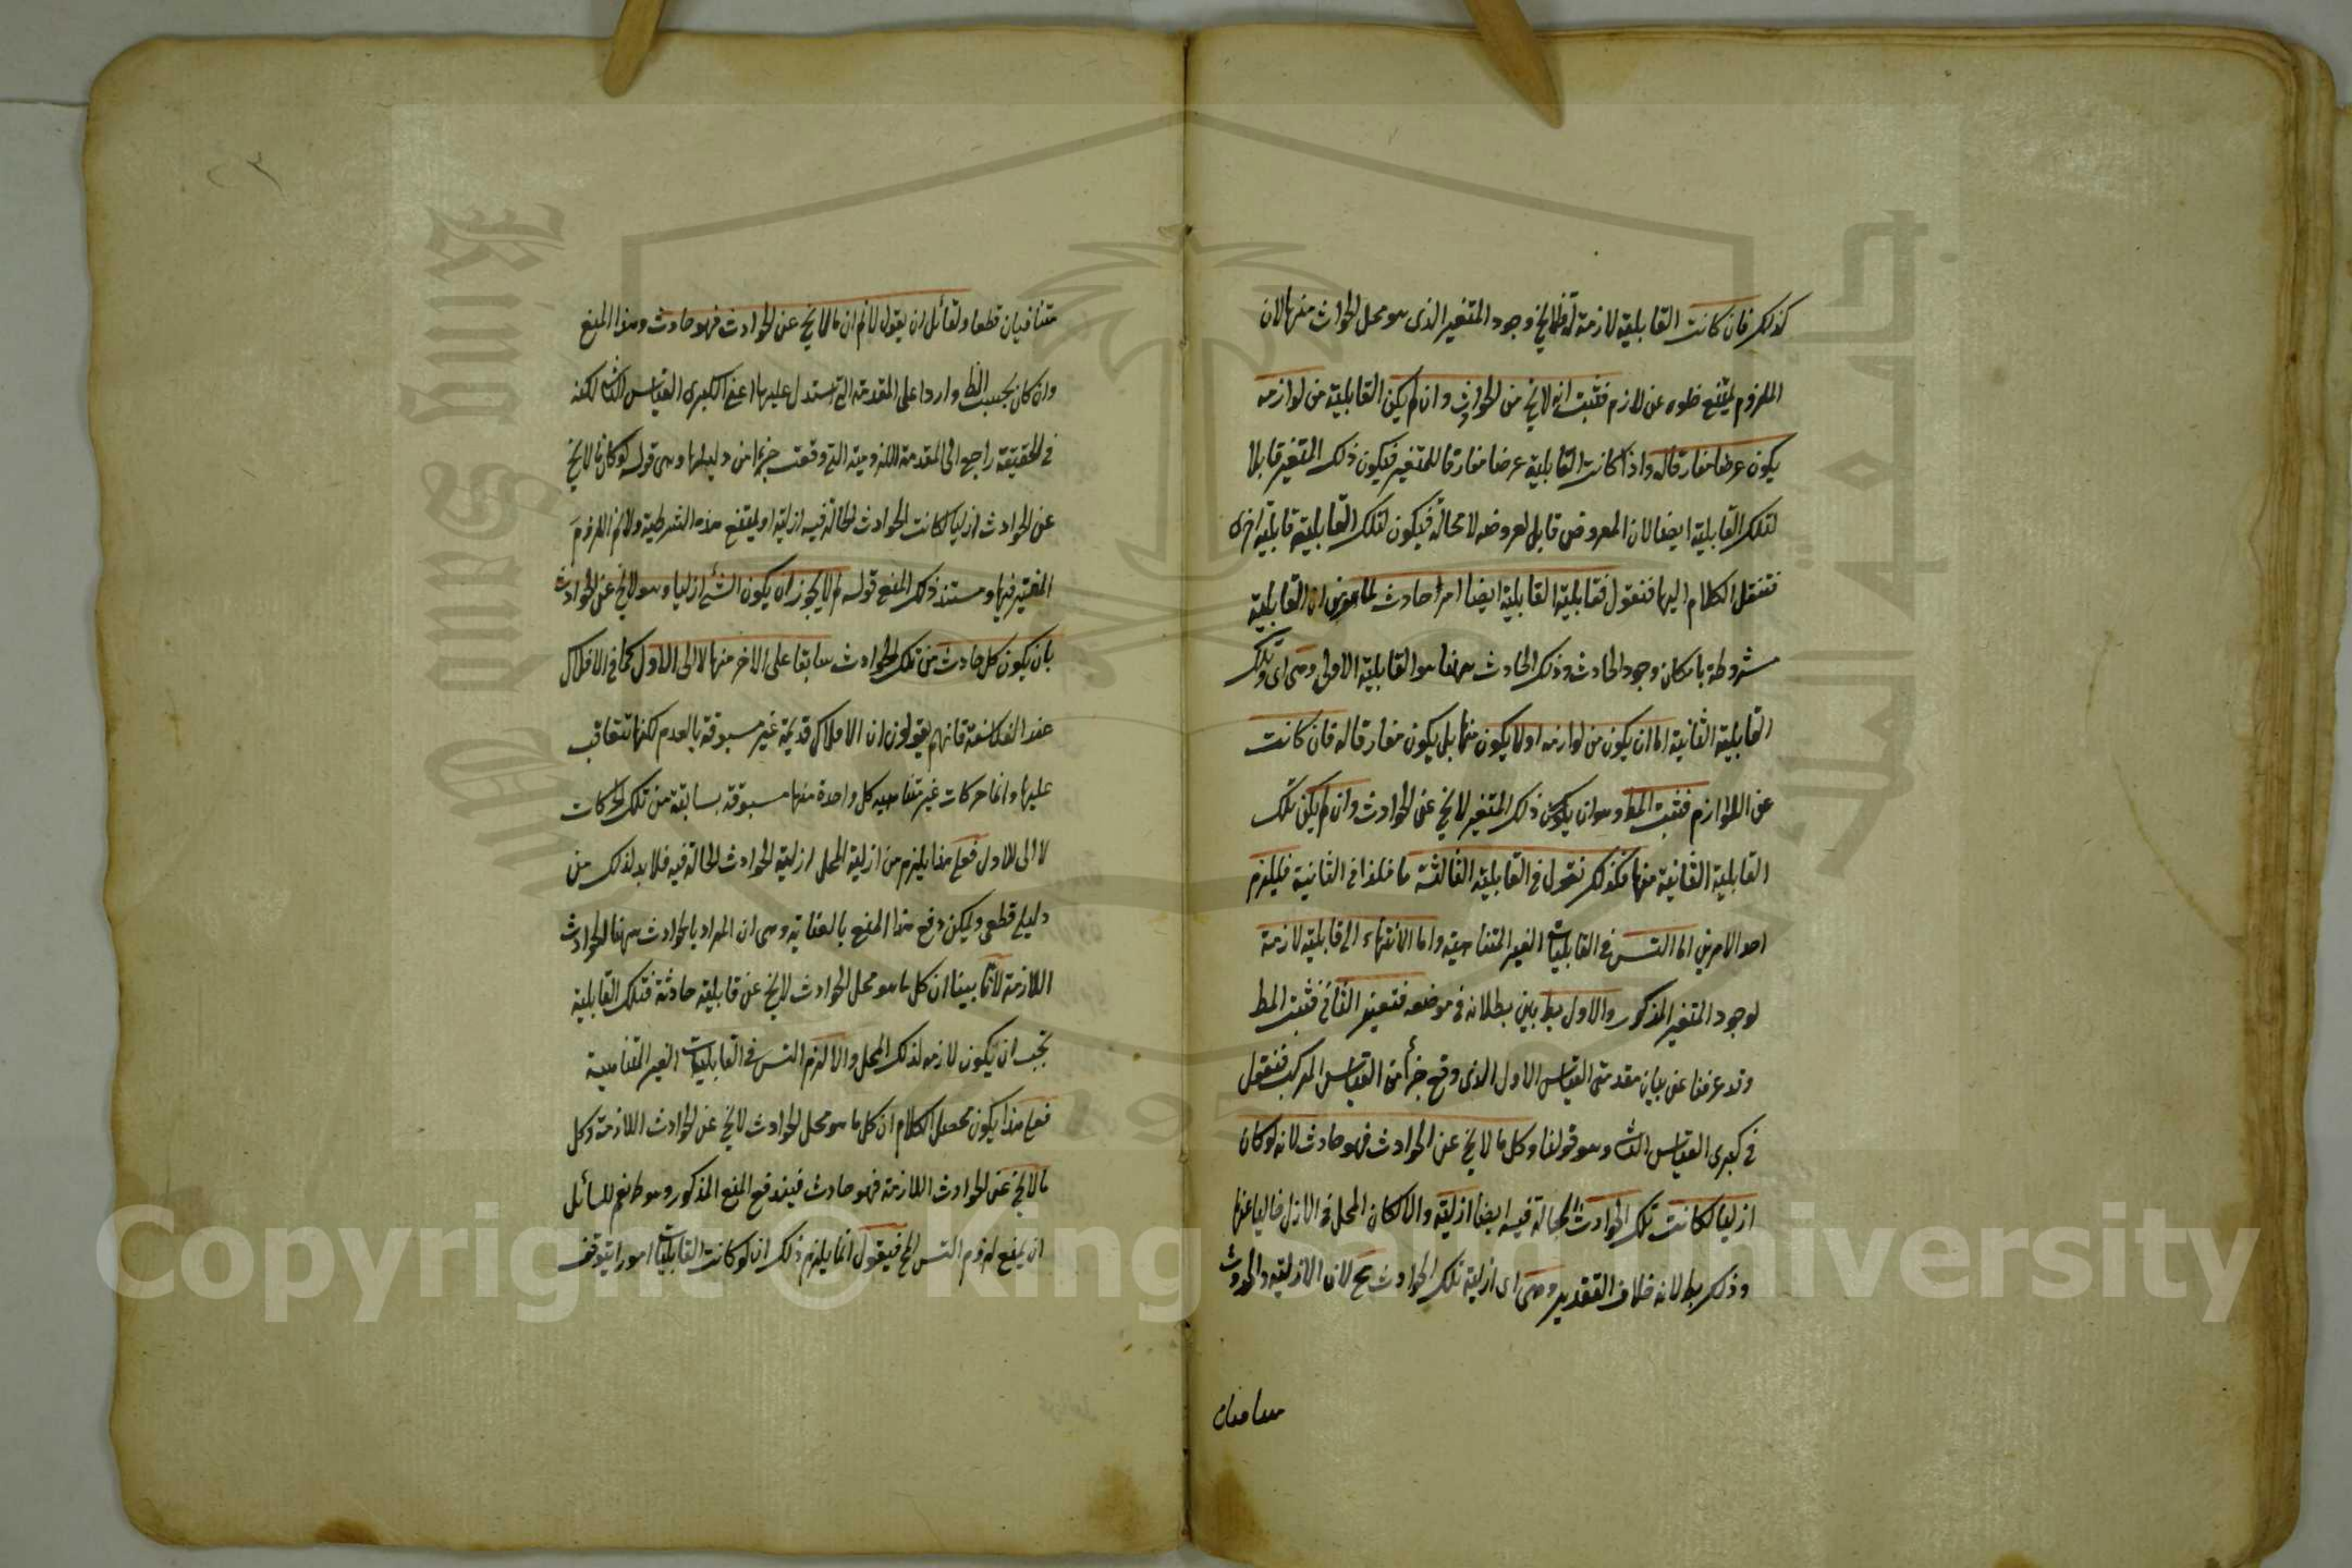 كذلك فان كانت القابلية لازمة له فلا يخ وجود المتغير الذى هو محل الحوادث منها لان
الملزوم يمتنع خلوه عن لازم فثبت انه لا يخ من الحوادث وان لم يكن القابلية من لوازمه
يكون عرضا مفارقا له واذا كانت القابلية عرضا مفارقا للمتغير فيكون ذلك المتغير قابلا
لتلك القابلية ايضا لان المعروض قابل لعروضه لا محالة فيكون لتلك القابلية قابلية اخرى
فننقل الكلام اليها فنقول فقابلية القابلية ايضا امر حادث لما عرفت ان القابلية
مشروطة بامكان وجود الحادث وذلك الحادث ههنا هو القابلية الاولى وهى اى وتلك
القابلية الثانية اما ان يكون من لوازمه او لا يكون منها بل يكون مفارقا له فان كانت
من اللوازم فثبت المط وهو ان يكون ذلك المتغير لا يخ عن الحوادث وان لم يكن تلك
القابلية الثانية منها فكذلك نقول فى القابلية الثالثة ما قلنا فى الثانية فيلزم
احد الامرين اما التس فى القابليات الغير المتناهية واما الانتهاء الى قابلية لازمة
لوجود المتغير المذكور والاول بط بين بطلانه فى موضعه فتعين الثانى فثبت المط
وقد عرفنا عن بيان مقدمتى القياس الاول الذى وقع جزأ من القياس المركب فنقول
فى كبرى القياس الثا وهو قولنا وكل ما لا يخ عن الحوادث فهو حادث لانه لو كان
ازليا لكانت تلك الحوادث الحالة فيه ايضا ازلية والا لكان المحل فى الازل خاليا عنها
وذلك بطلانه خلاف التقدير وهى اى ازلية تلك الحوادث مح لان الازلية والحدوث
متنافيان
متنافيان قطعا ولقائل ان يقول لانم ان ما لا يخ عن الحوادث فهو حادث وهذا المنع
وان كان بحسب الظ واردا على المقدمة التى استدل عليها اعنى الكبرى القياس الثا لكنه
فى الحقيقة راجع الى المقدمة اللزومية التى وقعت جزءا من دليلها وهى قوله لو كان ما لا يخ
عن الحوادث ازليا لكانت الحوادث الحالة فيه ازلية او يمتنع هذه الشرطية ولانم اللزوم
المعتبر فيها ومستند ذلك المنع قوله لم لا يجوز ان يكون الشئ ازليا وهو لا يخ عن الحوادث
بان يكون كل حادث من تلك الحوادث سابقا على الاخر منها لا الى الاول كما فى الافلاك
عند الفلاسفة فانهم يقولون ان الافلاك قديمة غير مسبوقة بالعدم لكنها تتعاقب
عليها وانما حركات غير متناهيه كل واحدة منها مسبوقة بسابقة من تلك الحركات
لا الى الاول فعلى هذا يلزم من ازلية المحل ازلية الحوادث الحالة فيه فلا بد لذلك من
دليل قطعى ويمكن دفع هذا المنع بالعناية وهى ان المراد بالحوادث ههنا الحوادث
اللازمة لانا بينا ان كل ما هو محل الحوادث لا يخ عن قابلية حادثة فتلك القابلية
تجب ان يكون لازمة لذلك المحل والا لزم التس فى القابليات الغير المتناهية
فعلى هذا يكون محصل الكلام ان كل ما هو محل الحوادث لا يخ عن الحوادث اللازمة وكل
ما لا يخ عن الحوادث اللازمة فهو حادث فيندفع المنع المذكور وهو ط نعم للسائل
ان يمنع لزوم التس الخ فيقول انما يلزم ذلك ان لو كانت القابليات امورا يتوقف
Copyright © King Saud University
King Saud University
1957